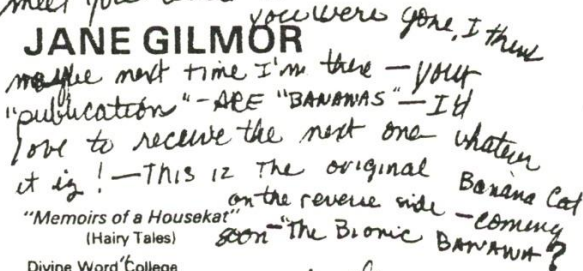 meet you
you were gone, I think
JANE GILMOR
maybe next time I'm there — your
"publication" - ARE "BANANAS" — I'd
love to receive the next one whatever
it is! — THIS IZ The original Banana Cat
on the reverse side — coming
"Memoirs of a Housekat"
soon — "The Bionic BANANA?
(Hairy Tales)
Divine Word College